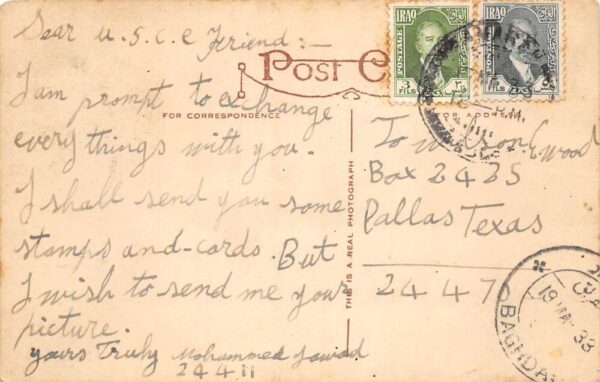 Dear U.S.C.E Friend:-
POST
FOR CORRESPONDENCE
I am prompt to exchange
every things with you.
I shall send you some
stamps and-cards. But
I wish to send me your
picture.
yours Truly Mohammed Jawad
24411
THIS IS A REAL PHOTOGRAPH
IRAQ
POSTAGE
FILS
IRAQ
POSTAGE
FILS
To
Box 2425
Dallas Texas
24470
19 MA 38
BAGHDA